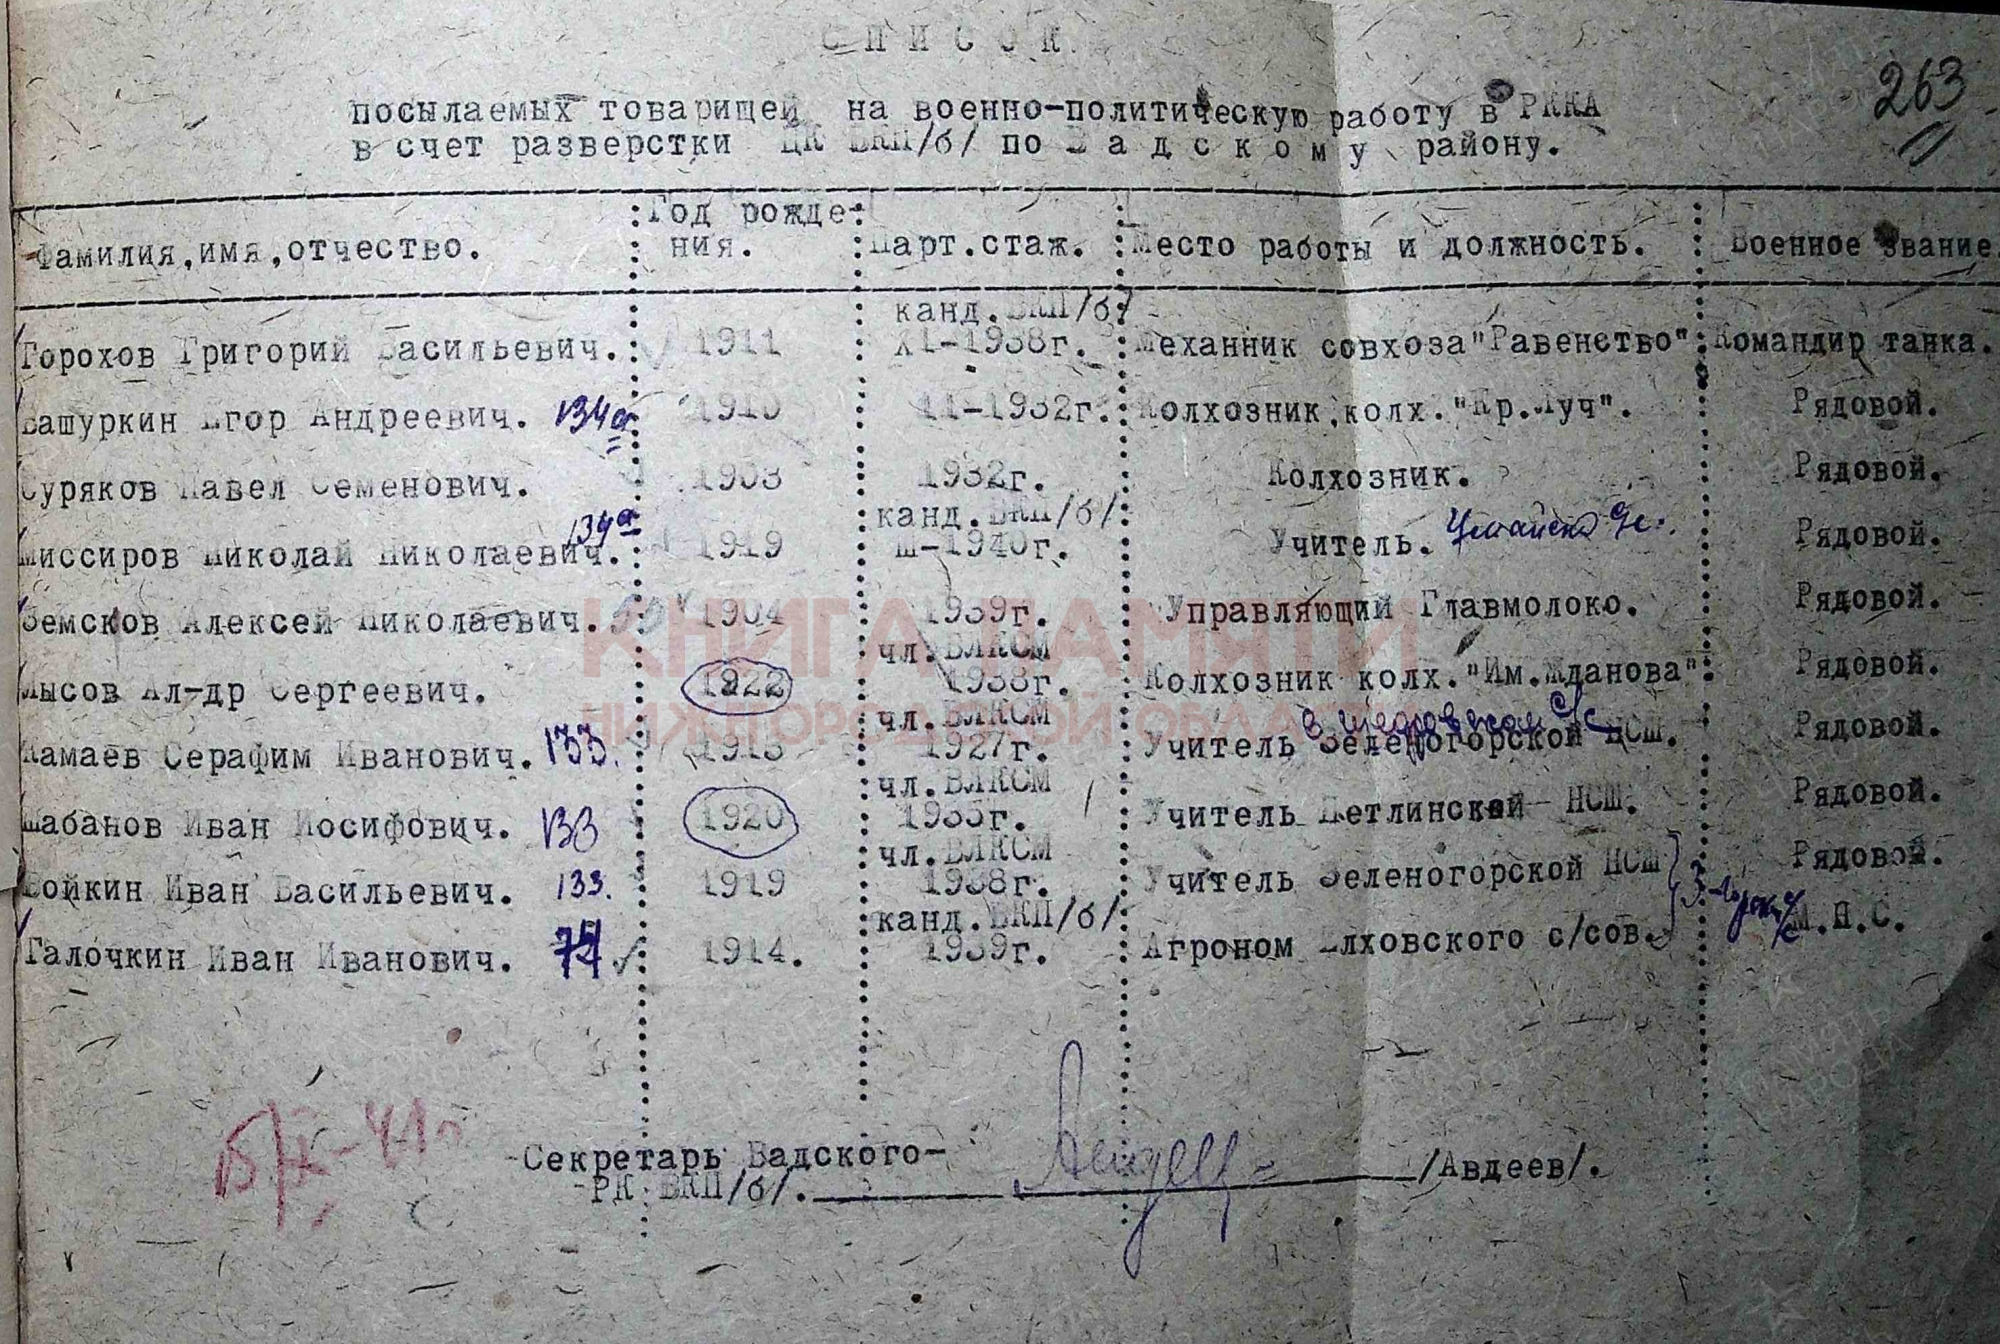 С П И С О К
263
посылаемых товарищей на военно-политическую работу в РККА
в счет разверстки ЦК ВКП/б/ по В а д с к о м у району.
Фамилия,имя,отчество. Год рожде- Парт.стаж. Место работы и должность. Военное звание.
ния.
канд.ВКП/б/
Горохов Григорий Васильевич. 1911 Х1-1938г. Механник совхоза"Равенство". Командир танка.
Вашуркин Егор Андреевич. 134а 11-1932г. Колхозник,колх."Кр.Луч". Рядовой.
Суряков Павел Семенович. 1903 1932г. Колхозник. Рядовой.
134а канд.ВКП/б/
Миссиров Николай Николаевич. 1919 Ш-1940г. Учитель. Рядовой.
Земсков Алексей Николаевич. 1904 1939г. Управляющий Главмолоко. Рядовой.
чл.ВЛКСМ
Лысов Ал-др Сергеевич. 1922 1938г. Колхозник колх."Им.Жданова" Рядовой.
чл.ВЛКСМ
Камаев Серафим Иванович. 133. 1927г. Учитель Зеленогорской НСШ. Рядовой.
чл.ВЛКСМ
Шабанов Иван Иосифович. 133 1920 1935г. Учитель Петлинской НСШ. Рядовой.
чл.ВЛКСМ
Бойкин Иван Васильевич. 133. 1919 1938г. Учитель Зеленогорской НСШ Рядовой.
канд.ВКП/б/
Галочкин Иван Иванович. 74 1914. 1939г. Агроном Елховского с/сов. М.Н.С.
КНИГА ПАМЯТИ
НИЖЕГОРОДСКОЙ ОБЛАСТИ
Секретарь Вадского-
РК ВКП/б/. /Авдеев/.